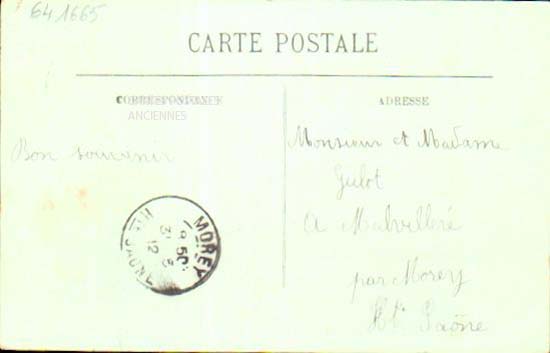 641665
CARTE POSTALE
CORRESPONDANCE
ANCIENNES
ADRESSE
Bon souvenir
Monsieur et Madame
Gulot
A Malvillers
par Morey
Hte Saône
MOREY
8 50
31 3
12
Hte SAONE